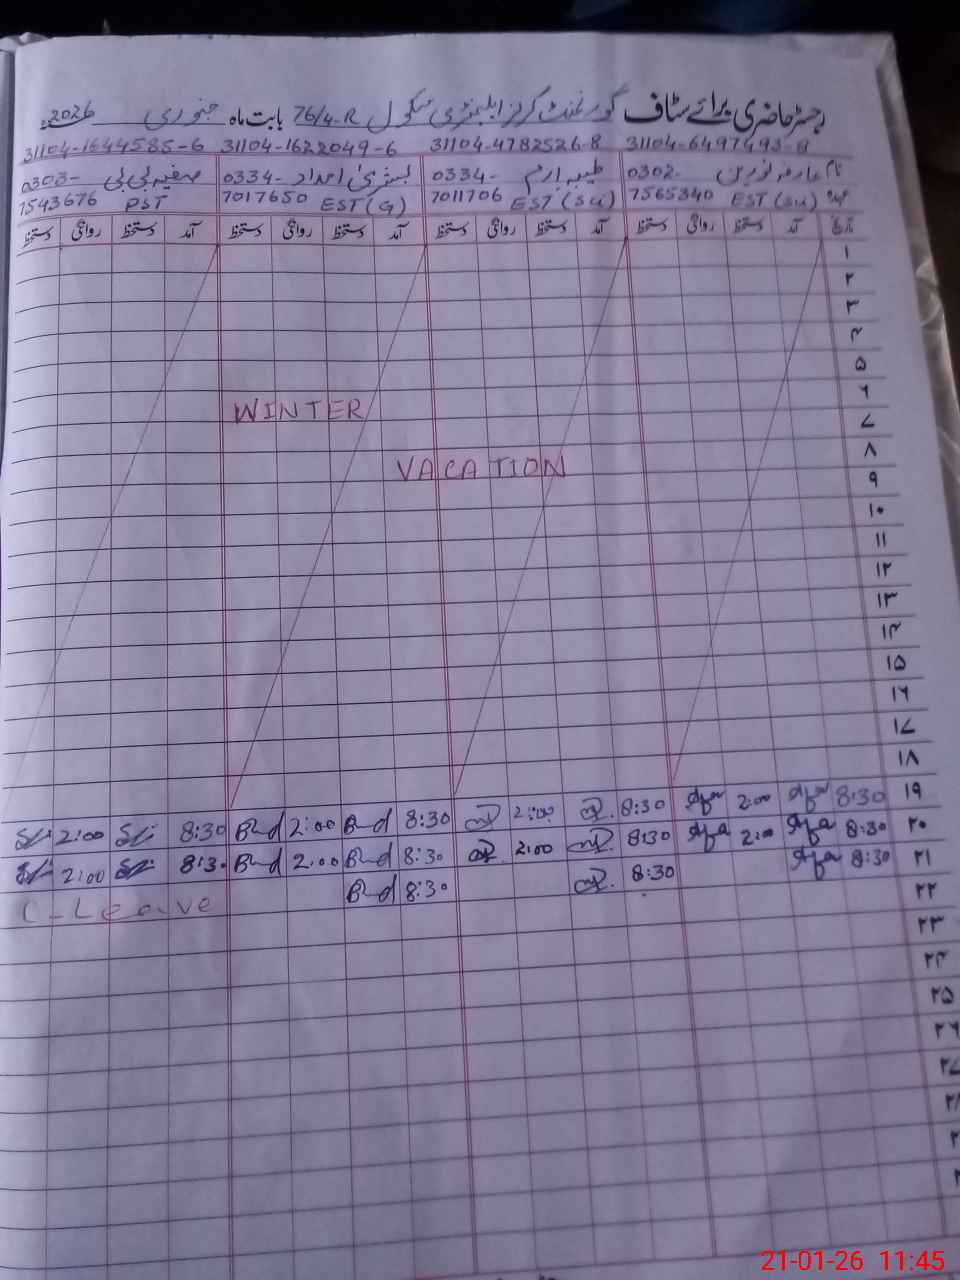 رجسٹر حاضری برائے سٹاف گورنمنٹ گرلز ایلیمنٹری سکول 76/4-R بابت ماہ جنوری 2026ء
31104-6497493-8 31104-4782526-8 31104-1622049-6 31104-1644585-6
نام عارفہ نورین 0302- طیبہ ارم 0334- بشریٰ امداد 0334- صفیہ بی بی 0303-
عہدہ EST (SU) 7565340 EST (SU) 7011706 EST (G) 7017650 PST 7543676
تاریخ آمد دستخط روانگی دستخط آمد دستخط روانگی دستخط آمد دستخط روانگی دستخط آمد دستخط روانگی دستخط
۱
۲
۳
۴
۵
۶
WINTER
۷
۸
VACATION
۹
۱۰
۱۱
۱۲
۱۳
۱۴
۱۵
۱۶
۱۷
۱۸
۱۹ 8:30 2:00 8:30 2:00 8:30 2:00 8:30 2:00
۲۰ 8:30 2:00 8:30 2:00 8:30 2:00 8:30 2:00
۲۱ 8:30 8:30 8:30 C-Leave
۲۲
۲۳
۲۴
۲۵
۲۶
۲۷
۲۸
21-01-26 11:45